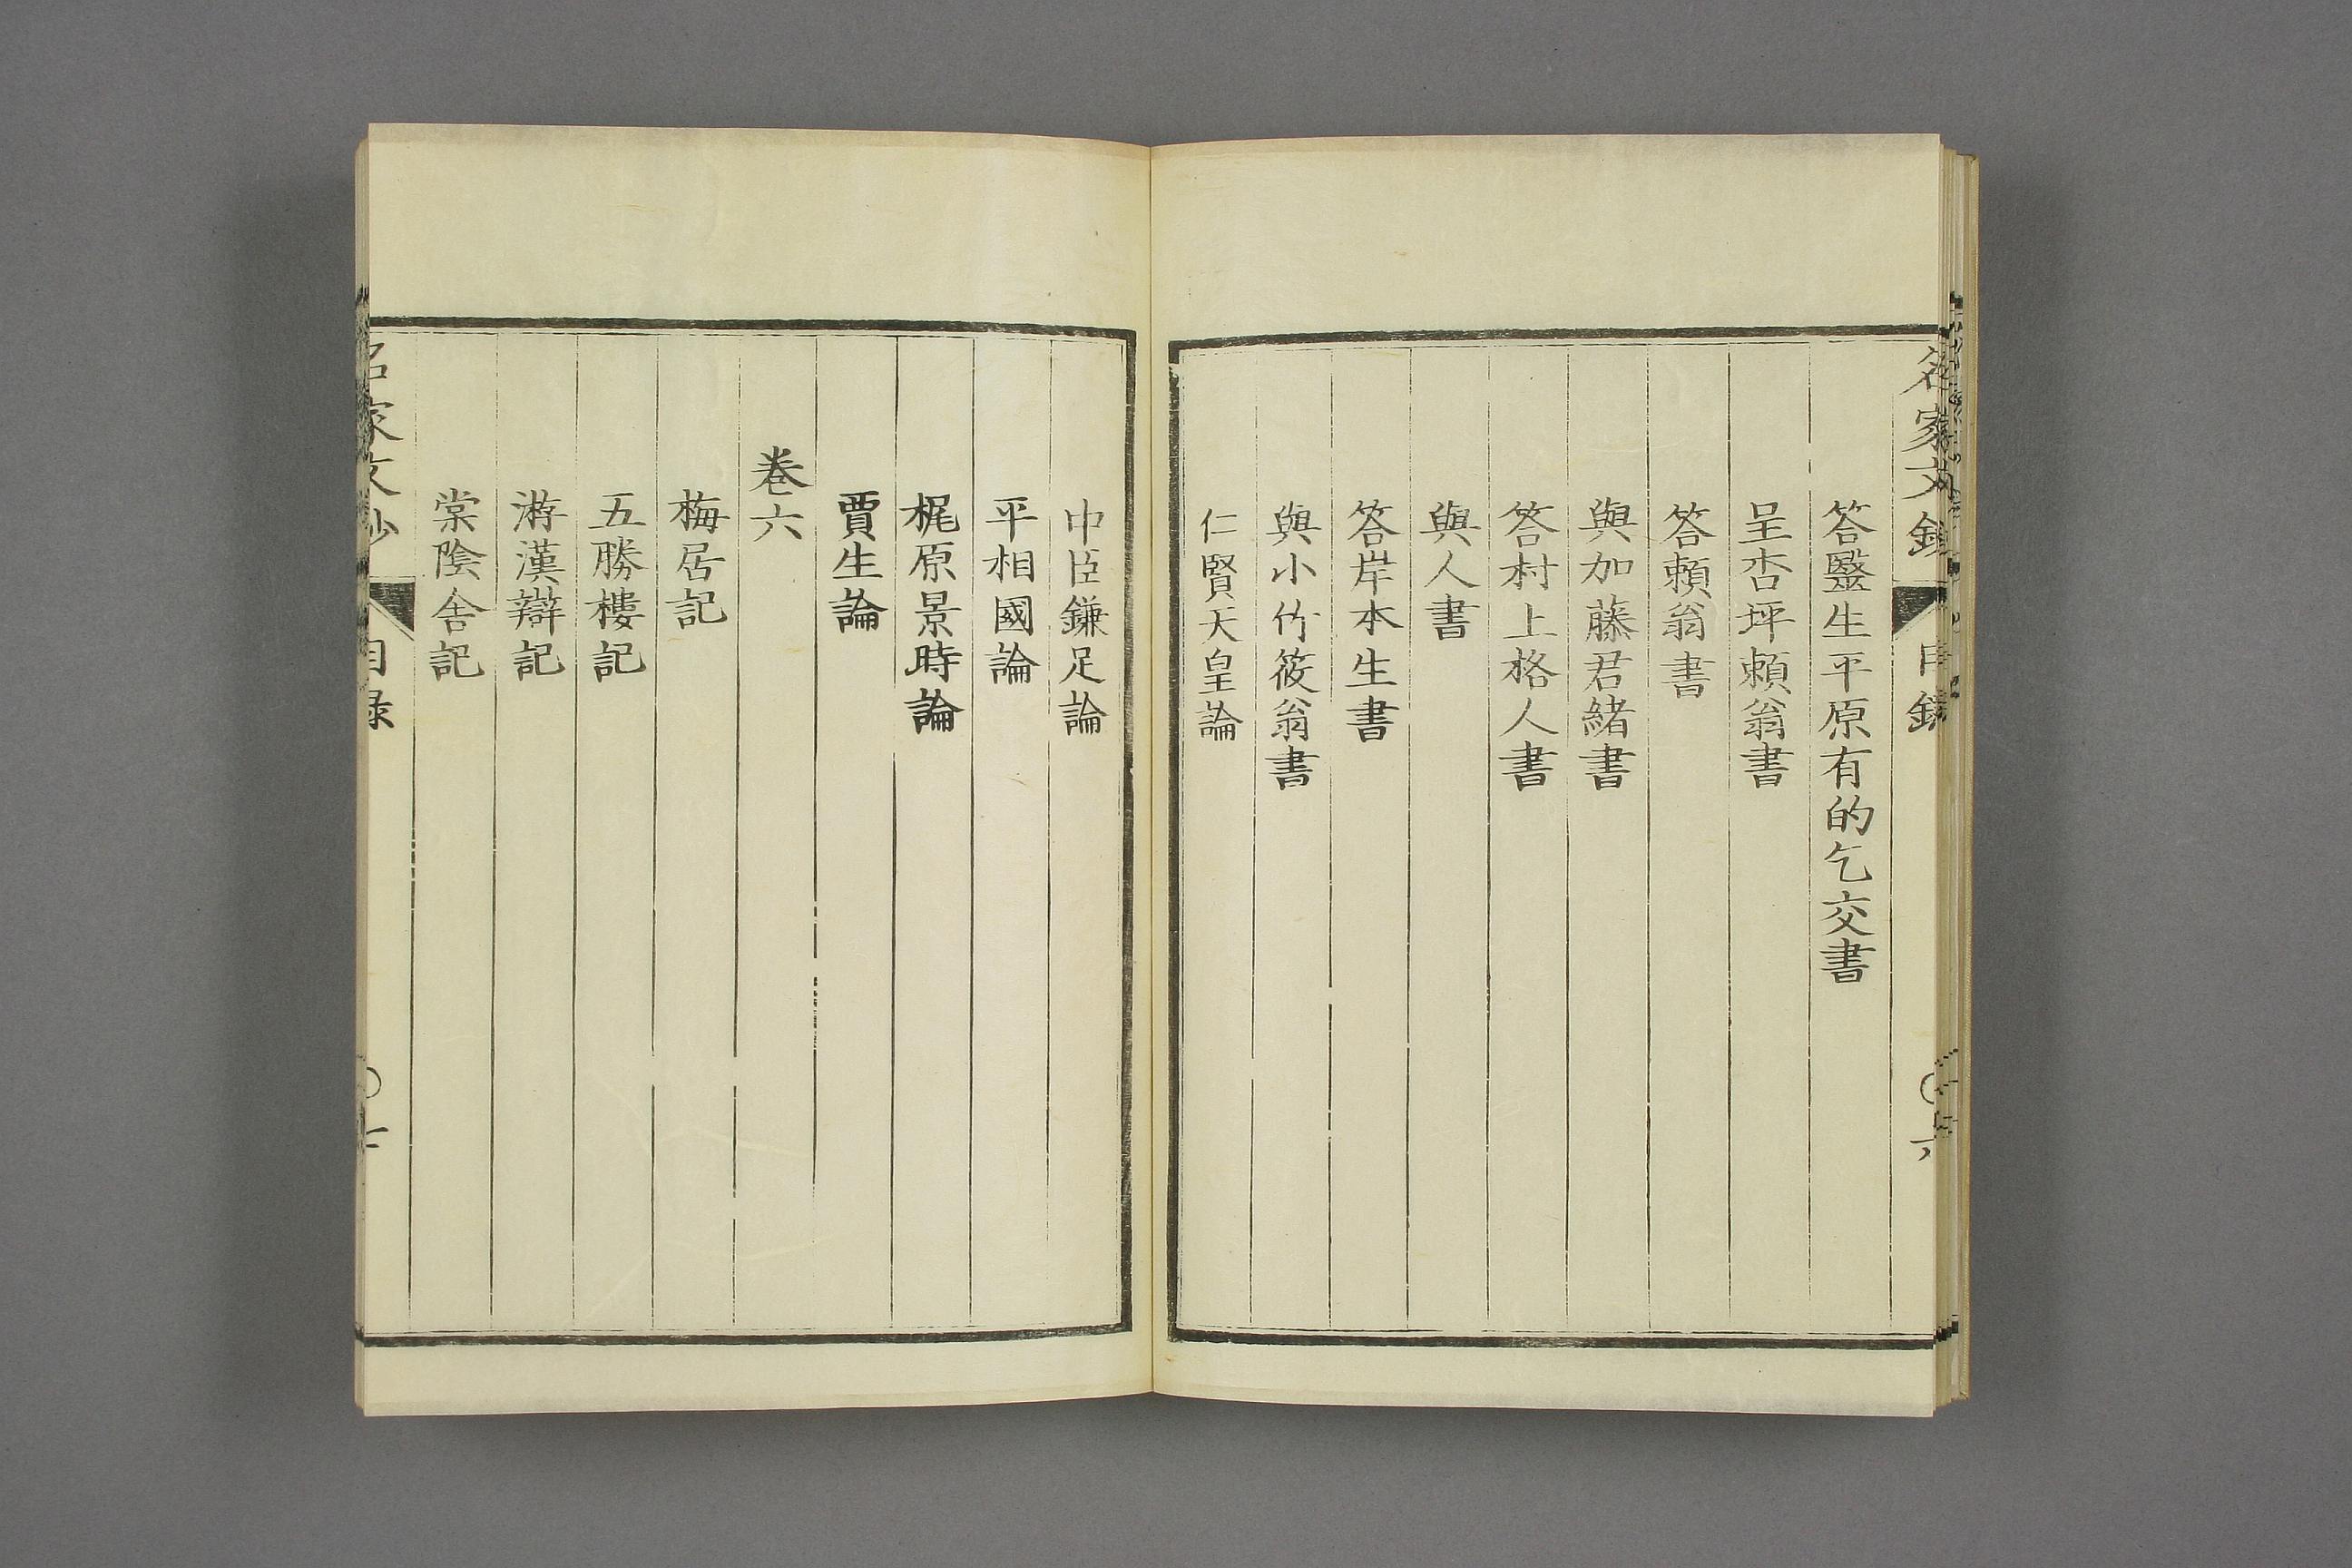 名家文鈔
目錄
六
答毉生平原有的乞交書
呈杏坪賴翁書
答賴翁書
與加藤君緒書
答村上格人書
與人書
答岸本生書
與小竹筱翁書
仁賢天皇論
中臣鎌足論
平相國論
梶原景時論
賈生論
卷六
梅居記
五勝樓記
游漢辯記
棠陰舍記
名家文鈔
目錄
七